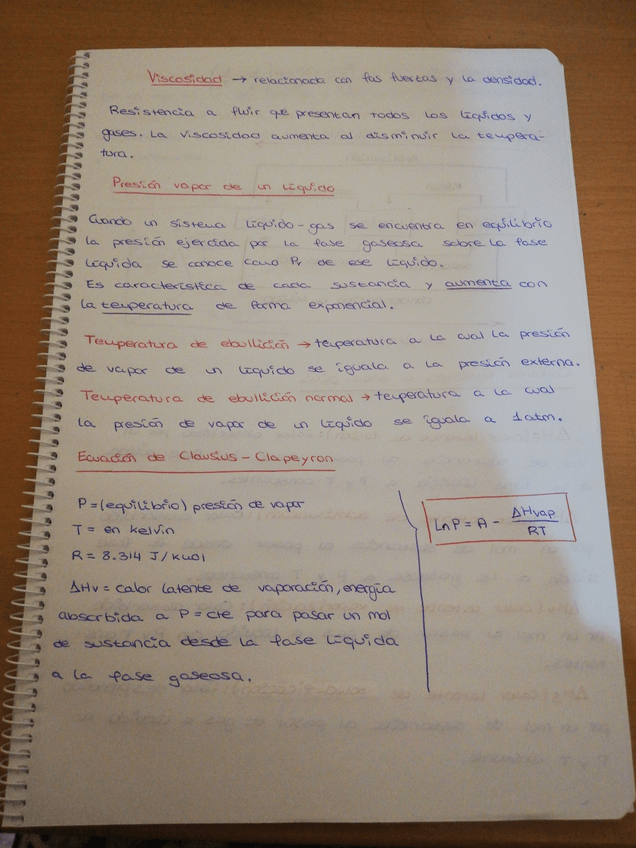 Viscosidad → relacionada con fas fuertas y la densidad.
Resistencia a fluir que presentan todos los líquidos y
gases. La viscosidad aumenta al disminuir la tempera-
tura.
Presión vapor de un líquido
Cuando un sistema líquido-gas se encuentra en equilibrio
la presión ejercida por la fase gaseosa sobre la fase
líquida se conoce como Pv de ese líquido.
Es característica de cada sustancia y aumenta con
la temperatura de forma exponencial.
Temperatura de ebullición → temperatura a la cual la presión
de vapor de un líquido se iguala a la presión externa.
Temperatura de ebullición normal → temperatura a la cual
la presión de vapor de un líquido se iguala a 1 atm.
Ecuación de Clausius - Clapeyron
P = (equilibrio) presión de vapor
T = en kelvin
R = 8.314 J/kmol
ΔHv = calor latente de vaporación, energía
absorbida a P = cte para pasar un mol
de sustancia desde la fase líquida
a la fase gaseosa.
Ln P = A - ΔHvap / RT